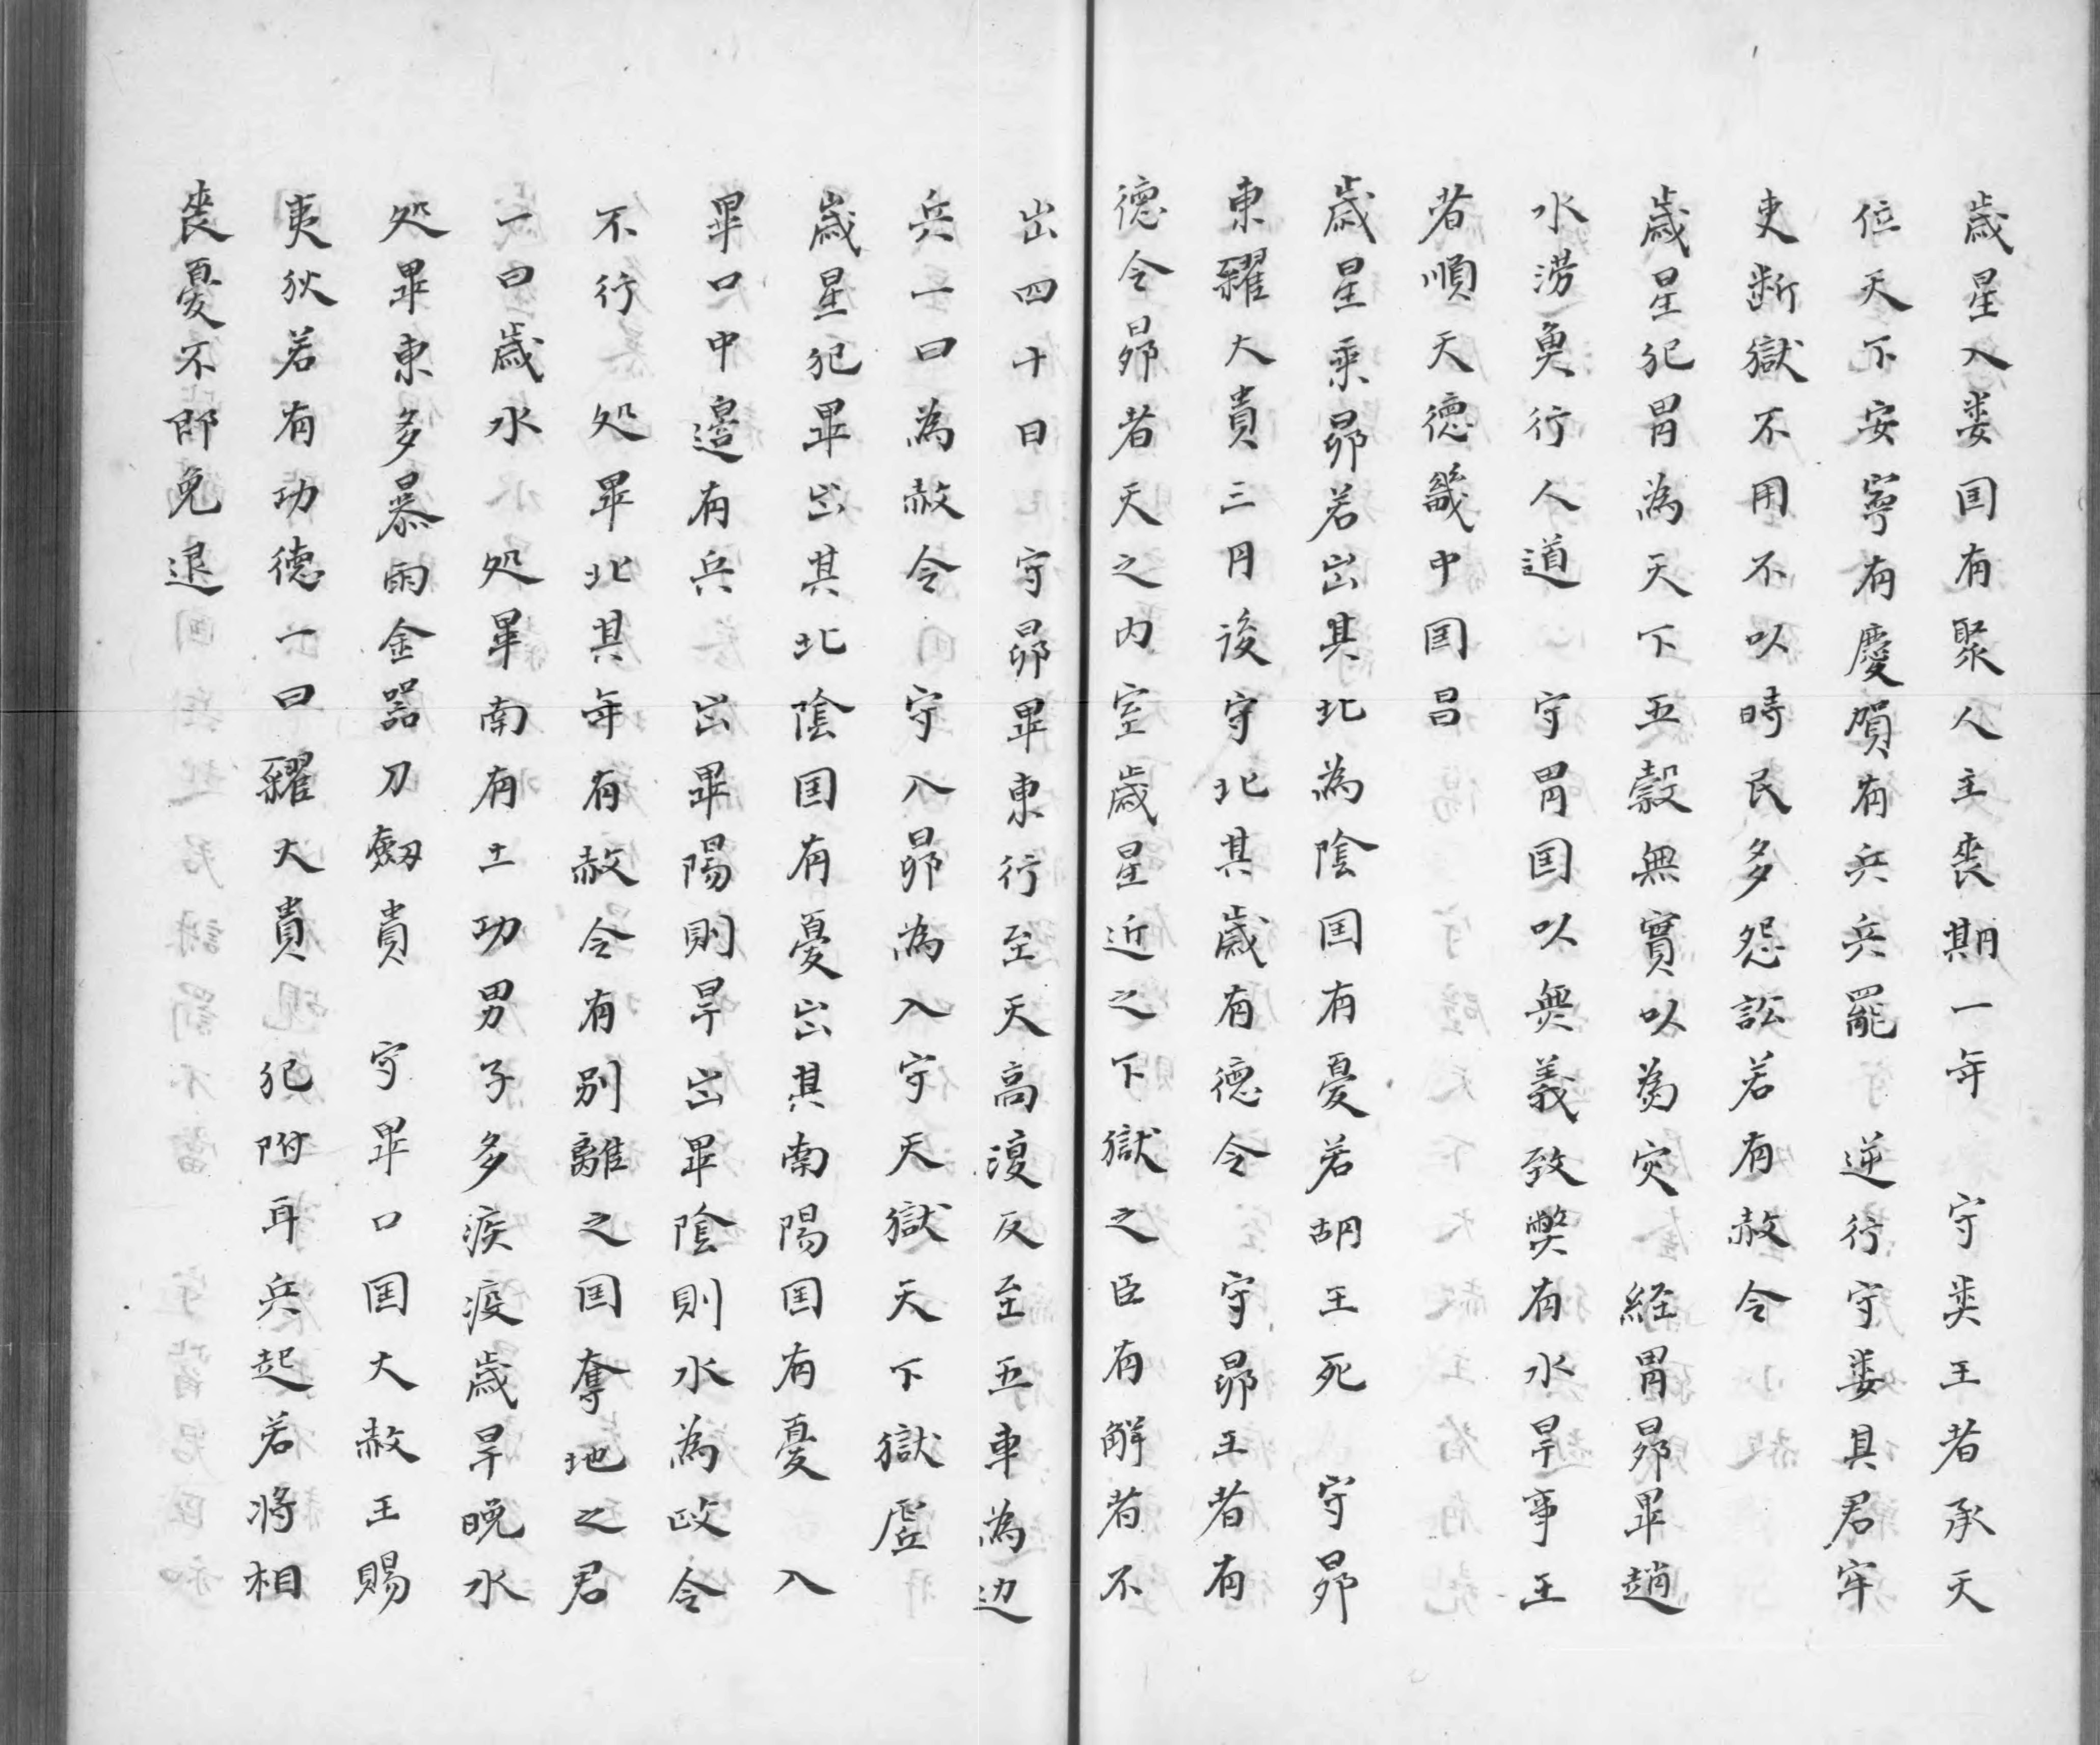 歳星入婁国有聚人主喪期一年　守婁王者承天
位天下安寧有慶賀有兵兵罷　逆行守婁其君牢
吏断獄不用不以時民多怨訟若有赦令
歳星犯胃為天下五穀無實以為灾　経胃昴畢趙
水澇魚行人道　守胃国以無義致弊有水旱事王
者順天徳畿中国昌
歳星乗昴若出其北為陰国有憂若胡王死　守昴
東糴大貴三月後守北其歳有徳令　守昴王者有
徳令昴者天之内室歳星近之下獄之臣有解者不
出四十日　守昴畢東行至天高復反至五車為边
兵一曰為赦令　守入昴為入守天獄天下獄虚
歳星犯畢出其北陰国有憂出其南陽国有憂　入
畢口中邉有兵　出畢陽則旱出畢陰則水為政令
不行　処畢北其年有赦令有別離之国奪地之君
一曰歳水　処畢南有土功男子多疾疫歳旱晩水
処畢東多暴雨金器刀劔貴　守畢口国大赦王賜
夷狄若有功徳一曰糴大貴　犯附耳兵起若将相
喪憂不即免退